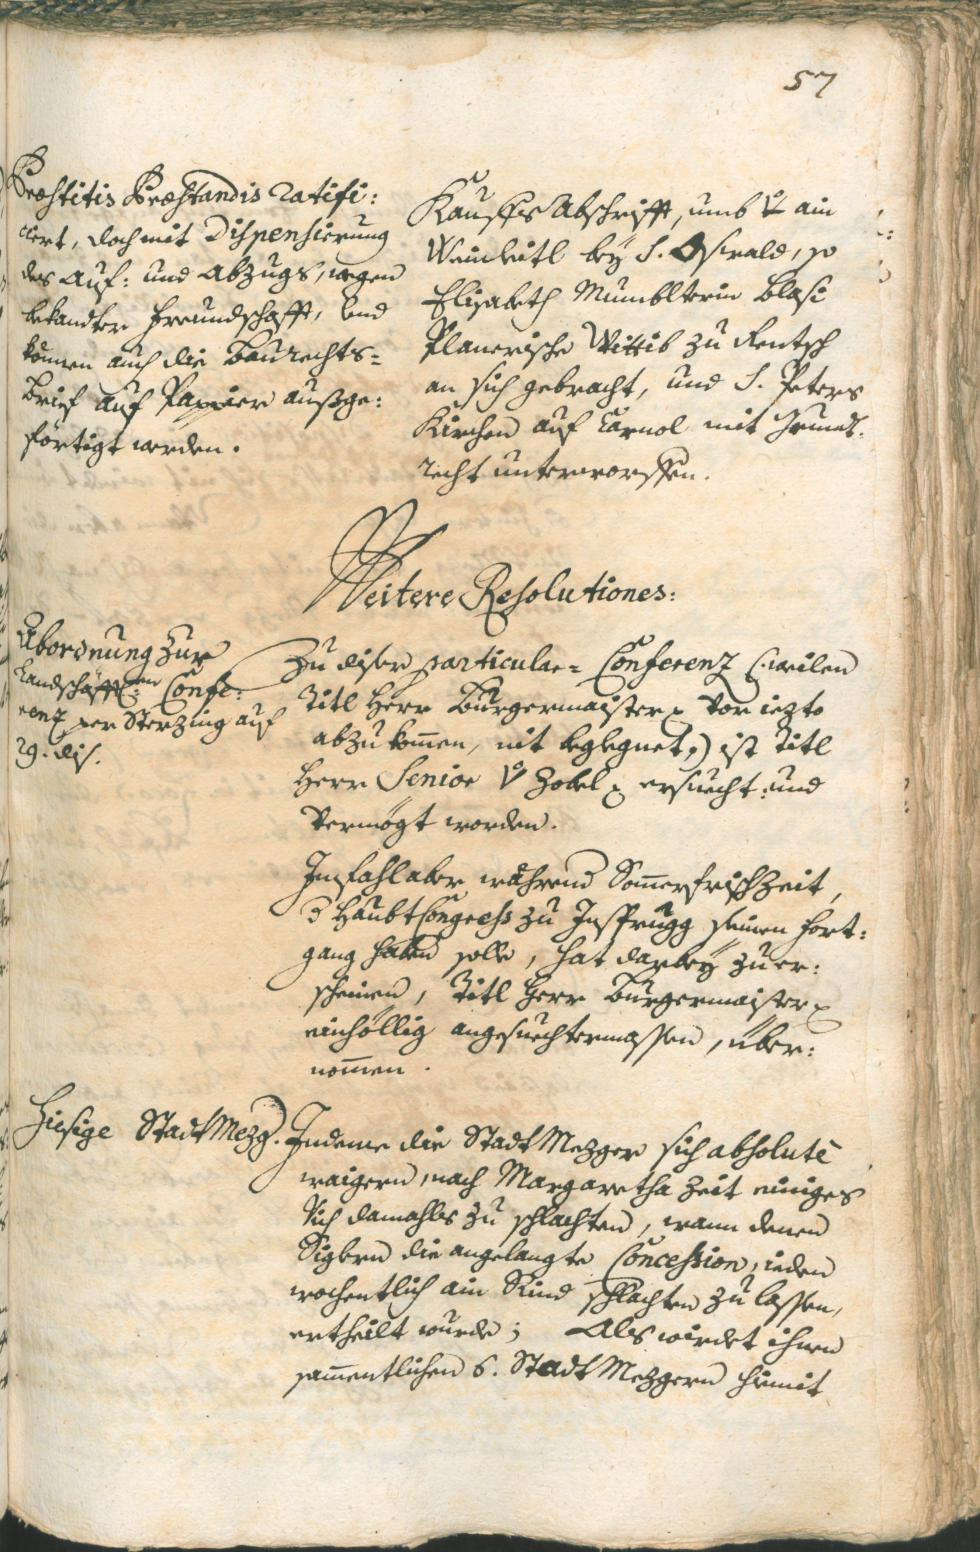 57
Præstitis Præstandis ratifi:
ciert, doch mit Dispensierung
des Auf: und Abzugs, wegen
bekandter Freundschafft, und
können auch die Baurechts=
brief auf Pappier außge:
förtigt werden.
Kauffs Abschrifft, umb ain
Weinheitl bey S. Oswald, so
Elisabeth Mumblterin Blasi
Planerische Wittib zu Rentsch
an sich gebracht, und S. Peters
Kirchen auf Carnol mit
recht unterworffen.
Weitere Resolutiones:
Abordnung zur
Landschäfftl:en Confe:
renz per Sterzing auf
29. dis.
Zu diser particular= Conferenz (:weilen
Titl Herr Burgermaister vor iezto
abzukommen, nit begegnet,) ist Titl
Herr Senior v Zobel ersuecht und
vermögt worden.
Im fahl aber während Sommerfrischzeit,
d Haubt Congress zu Insprugg seinen Fort:
gang haben solle, hat darbey zu er:
scheinen, Titl Herr Burgermaister
einhöllig angesuechtermassen, über:
nommen.
Hiesige Stadt Mezg.
Indeme die Stadt Mezger sich absolutè
waigern, nach Margaretha Zeit einiges
Vich damahls zu schlachten, wann denen
die angelangte Concession, ieden
wochentlich ain Rind schlachten zu lassen,
ertheilt wurde; Als wirdet ihnen
sammentlichen 6. Stadt Mezgern hiemit